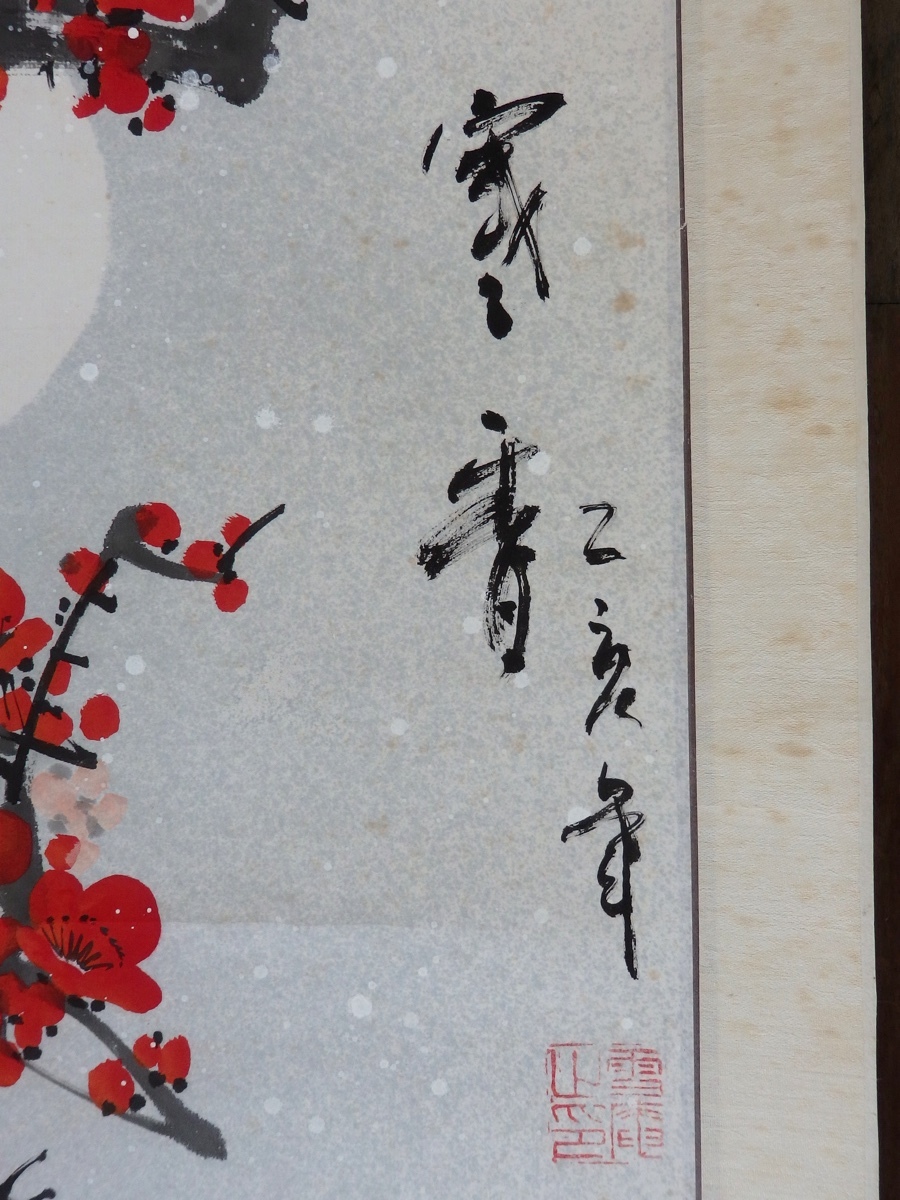 寒香
乙亥年